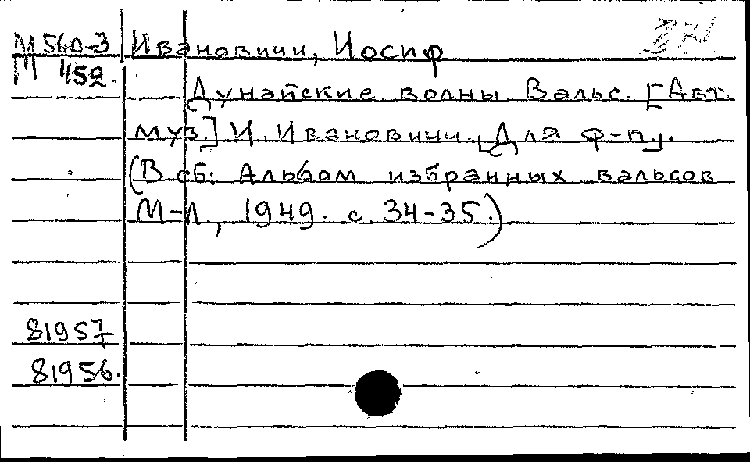 М 560-3 Ивановичи, Иосиф
М 452.
Дунайские волны Вальс. [Авт.
муз.] И. Ивановичи. [Для ф-п.].
(В сб: Альбом избранных вальсов
М-Л, 1949. с. 34-35.)
81957
81956.